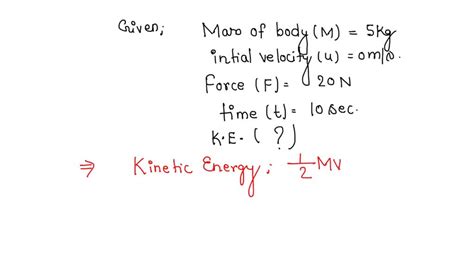 Given; Mass of body (M) = 5kg
intial velocity (u) = 0m/s.
Force (F) = 20N
time (t) = 10 sec.
K.E. (?)
⇒ Kinetic Energy; 1/2 MV